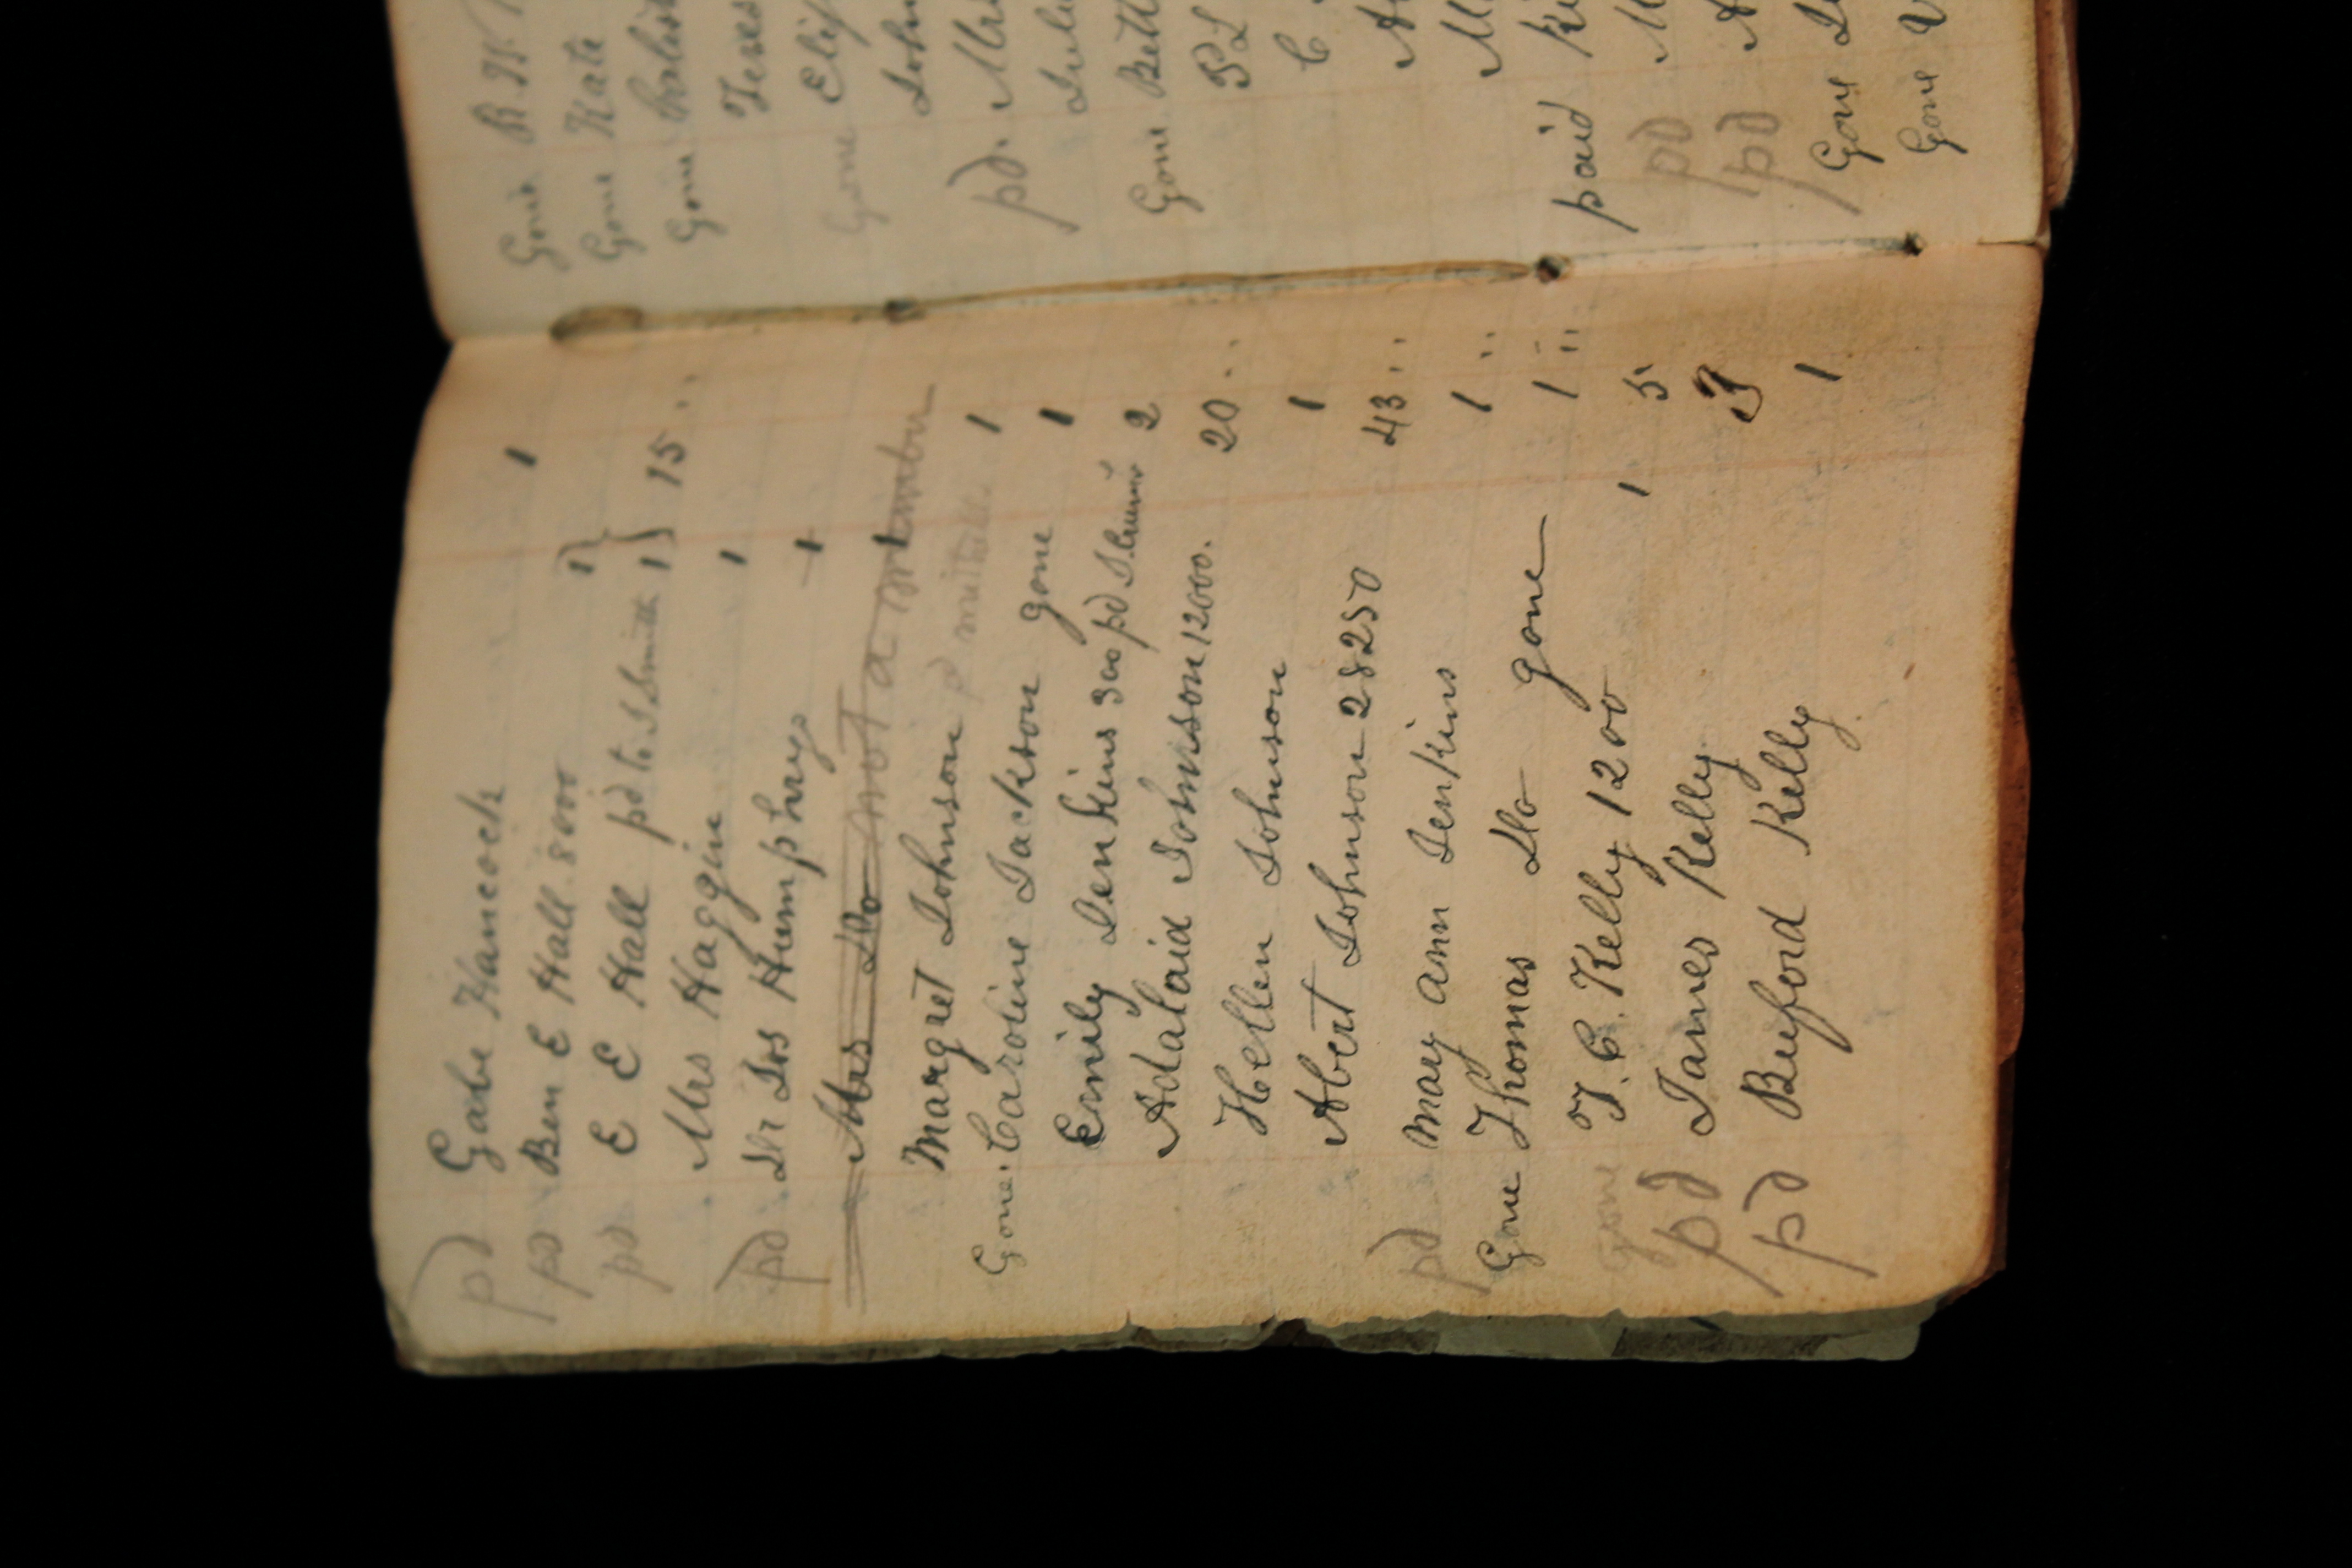 pd Gabe Hancock 1
pd Ben E Hall 8000 1
pd E E Hall pd to J Smith 1 } 15 ..
Mrs Haggin 1
pd Dr Jos Humphrys 1
Mrs Do not a member 1
Margret Johnson 1
Gone Caroline Jackson gone 1
Emily Jenkins 300 pd 2
Adalaid Johnson 12000. 20 ..
Hellen Johnson 1
Abert Johnson 28250 43 ..
pd Mary Ann Jenkins 1 ..
Gone Thomas Do gone 1 ..
gone T. C. Kelly 1200 1 5
pd James Kelly 3
pd Buford Kelly 1
Gone R. H.
Gone Kate
Gone
Gone
John
pd. Mrs
Gone Bett
P L
C
paid
pd M
pd A
Gone
Gone